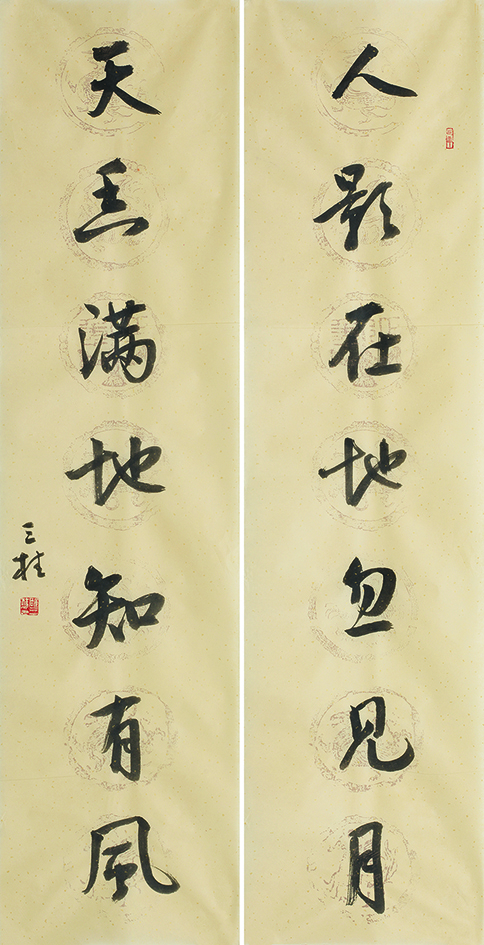 人影在地忽見月
天香满地知有風
三桂